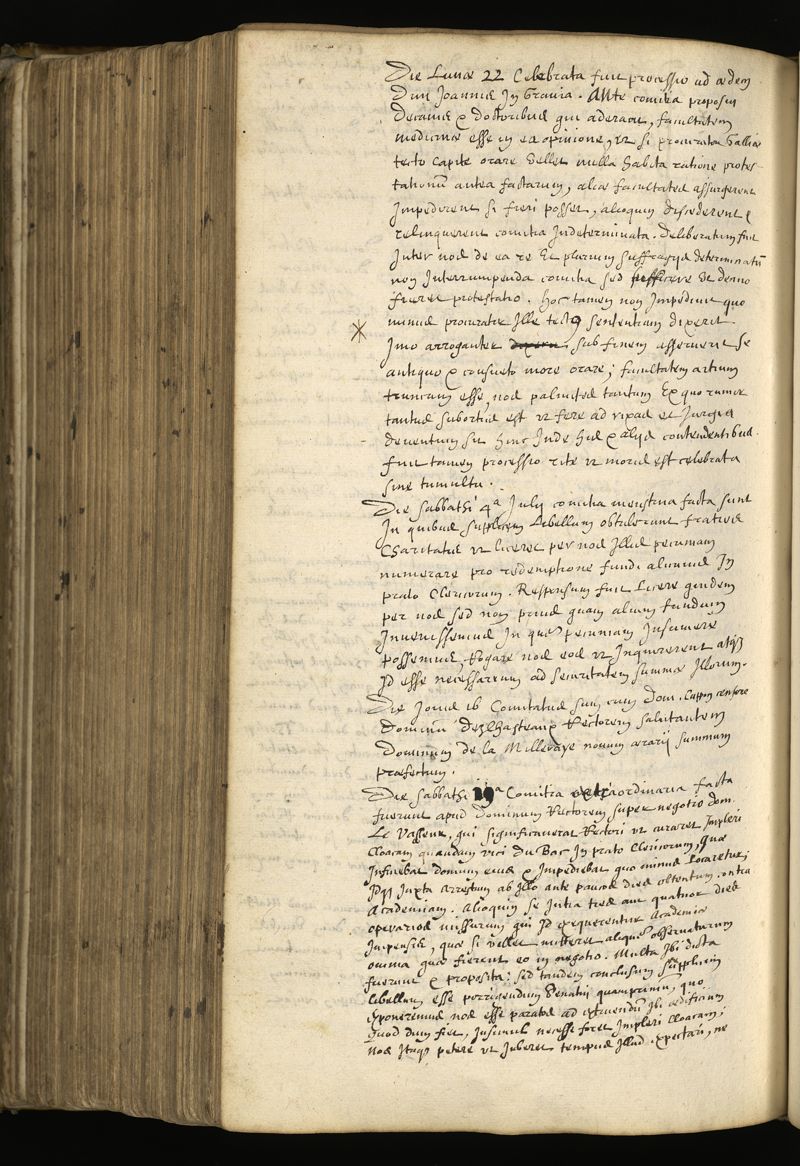 Die Lunæ 22 Celebrata fuit processio ad ædem
Divi Joannis In Gravia. Ante comitia proposuit
Decanus & doctoribus qui aderant, facultatem
medicinæ esse in ea opinione, ut si procurator Galliæ
tecto capite orare vellet nulla habita ratione protes-
tationū antea factarum, aliæ facultates assurgerent
Impedirent si fieri posset, alioquin discederent &
relinquerent comitia Indeterminata. Deliberatum fuit
Inter nos de ea re Et plurium suffragijs determinatū
non Interrumpenda comitia sed sufficere ut denuo
fieret protestatio. hoc tamen non Impedivit quo
minus procurator Ille tectus sententiam dixerit.
Imo arroganter sub finem asseruerit se
antiquo & consueto more orare; facultatem artium
truncum esse, nos palmites tantum Ex quo rumor
tantus subortus est ut fere ad rixas et Jurgia
deventum sit hinc Inde his & alijs contendentibus.
fuit tamen processio rite ut moris est celebrata
sine tumultu.
Die Sabbathi 4a Julij comitia menstrua facta sunt
In quibus supplicem Libellum obtulerunt fratres
Charitatis ut liceret per nos Illis pecuniam
numerare pro redemptione fundi alicuius In
prato Clericorum. Responsum fuit Licere quidem
per nos sed non prius quam alium fundum
Invenissemus In quē pecuniam Insumere
possemus, Rogare nos eos ut Inquirerent atq3
Id esse necessarium ad securitatem summæ Illorum.
Die Jovis 16 Comitatus sum cum Dom. censore
Dominū Deslhasteaux Rectorem salutantem
Dominum de la Milleraye novum ærarij summum
præfectum.
Die Sabbathi 19a Comitia extraordinaria facta
fuerunt apud Dominum Rectorem super negotio dom.
Le Vasseur, qui significaverat Rectori ut curaret Impleri
Cloacam quandam vici Du Bac In prato Clericorum, quæ
Inficiebat domum eius & Impediebat quo minus Locaretur;
Idq3 Juxta arrestum ab Illo ante paucos dies obtentum contra
Academiam. Alioquin se Intra tres aut quatuor dies
operarios missurum qui Id exequerentur Academiæ
Impensis, quæ si vellet mitteret aliquē observaturum
omnia quæ fierent eo in negotio. Multa Ibi dicta
fuerunt & proposita: sed tandem conclusum supplicem
libellum esse porrigendum Senatui quamprimum, quo
exponeremus nos esse paratos ad extruendū Ibi ædificium
quod dum fiet, Insimul necesse foret Impleri Cloacam;
nos Itaq3 petere ut Juberet tempus Illud expectari, ne